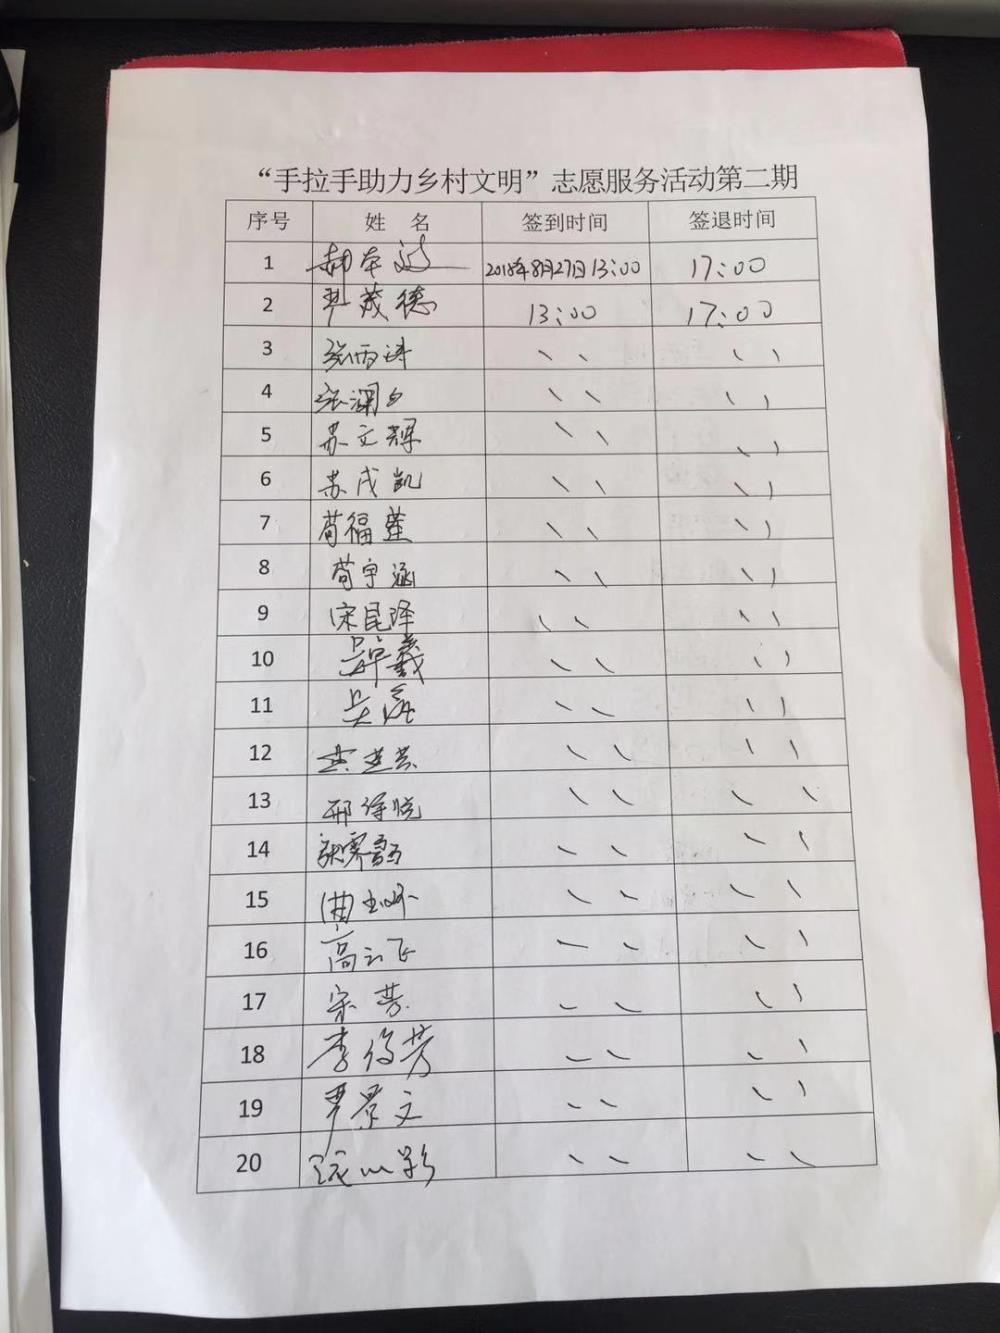 “手拉手助力乡村文明”志愿服务活动第二期
序号 姓 名 签到时间 签退时间
1 2018年8月27日13:00 17:00
2 茂德 13:00 17:00
3 张雨 、、 、、
4 张澜 、、 、、
5 苏文辉 、、 、、
6 苏茂凯 、、 、、
7 苟福莲 、、 、、
8 苟宇涵 、、 、、
9 宋昆泽 、、 、、
10 羲 、、 、、
11 吴 、、 、、
12 、、 、、
13 邢 晓 、、 、、
14 张霁 、、 、、
15 曲 、、 、、
16 高云飞 、、 、、
17 宋芳 、、 、、
18 李俊芳 、、 、、
19 景文 、、 、、
20 、、 、、